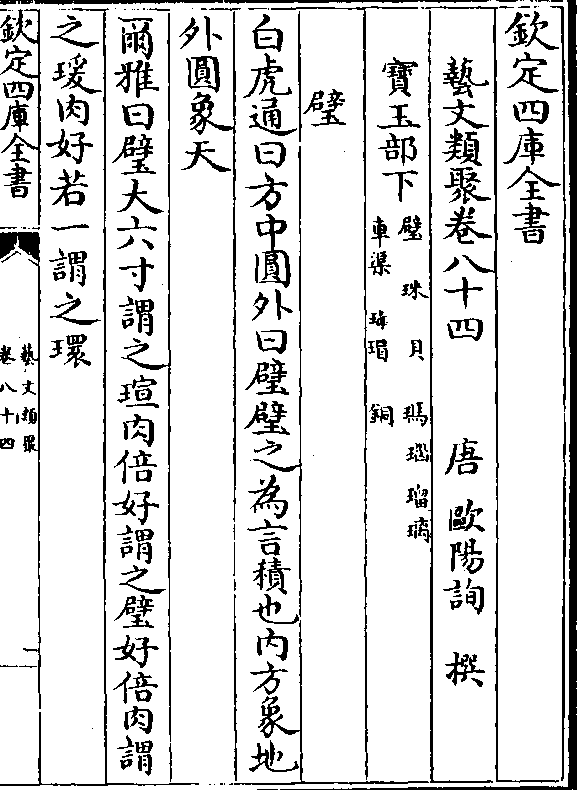 欽定四庫全書
藝文類聚卷八十四
唐 歐陽詢 撰
寳玉部下
璧 珠 貝 瑪瑙 瑠璃
車渠 瑇瑁 銅
璧
白虎通曰方中圓外曰璧璧之為言積也内方象地
外圓象天
爾雅曰璧大六寸謂之瑄肉倍好謂之璧好倍肉謂
之瑗肉好若一謂之環
欽定四庫全書
藝文類聚
卷八十四
一